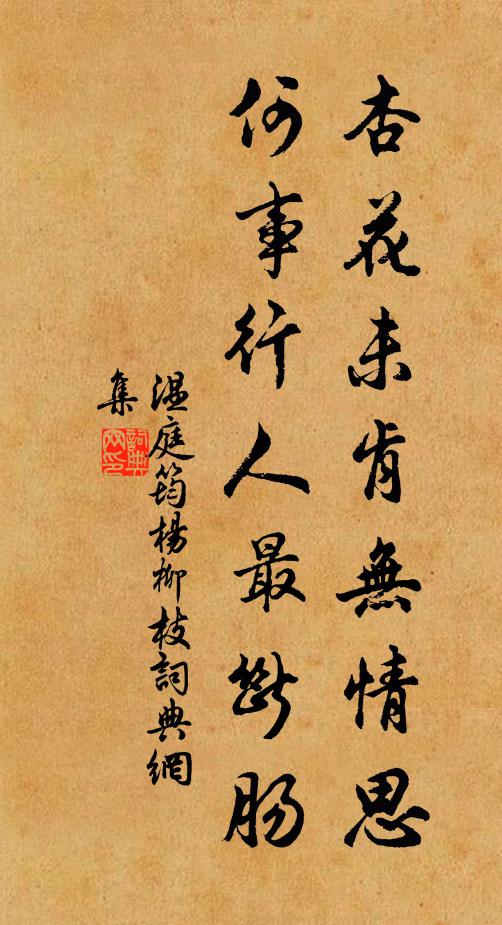 杏花未肯無情思
何事行人最斷腸
温庭筠楊柳枝詞典網
集
詞典网印